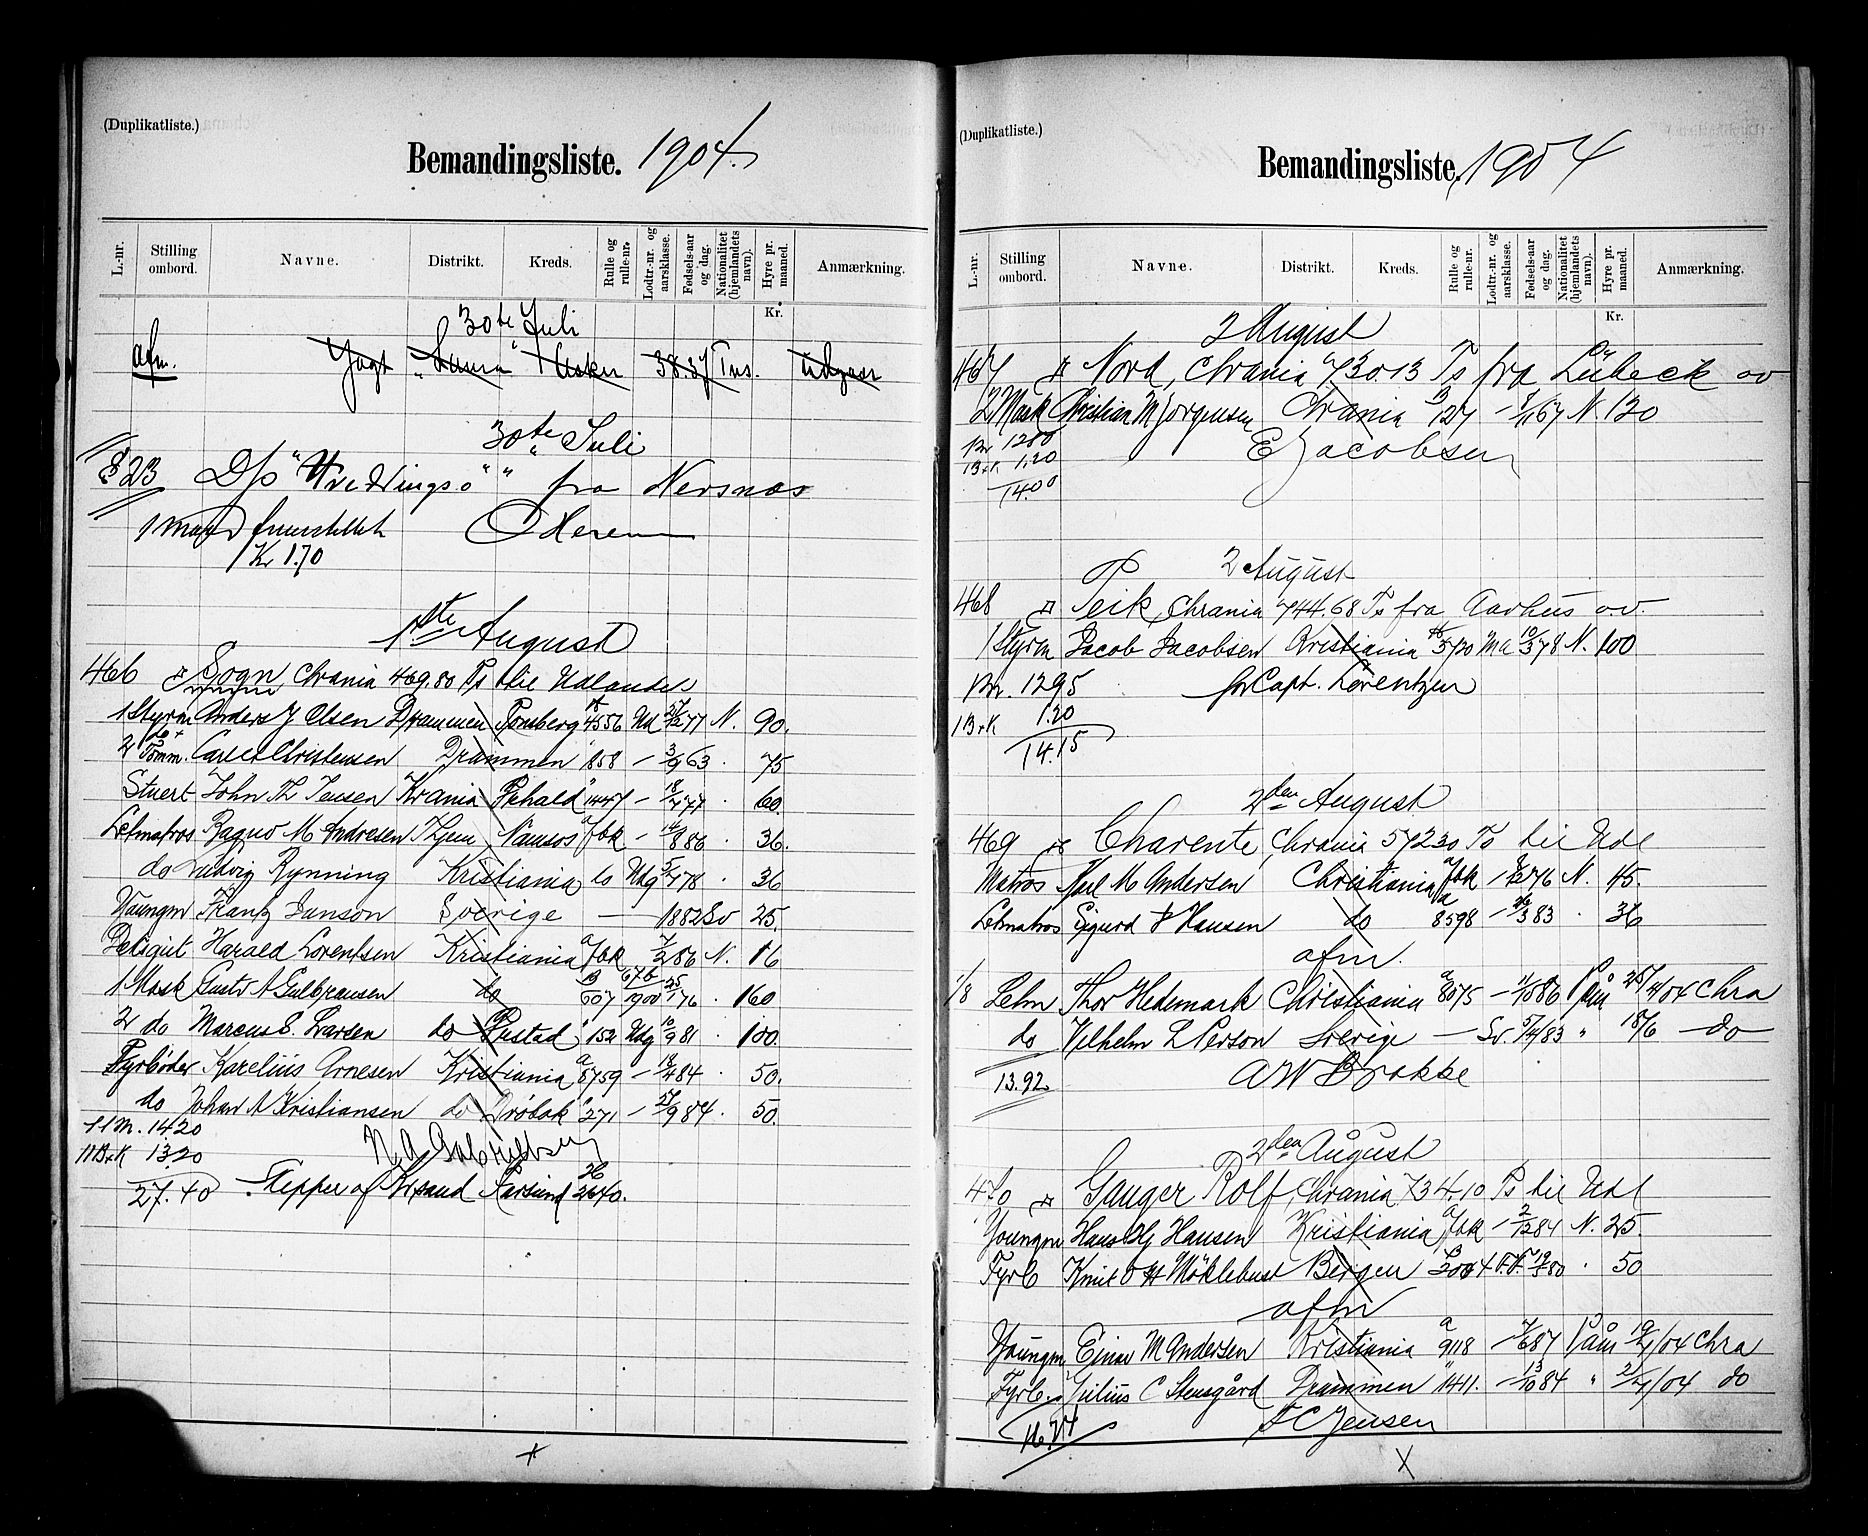 (Duplikatliste.)
Bemandingsliste. 1904.
L.-nr. Stilling ombord. Navne. Distrikt. Kreds. Rulle og rulle-nr. Lodtr.-nr. og aarsklasse. Fødsels-aar og dag. Nationalitet (hjemlandets navn). Hyre pr. maaned. Anmærkning.
Kr.
30te Juli
afm. Jagt "Laura" Asker 38.37 Tns.
30te Juli
§ 23 D/s fra Nersnæs
Kr 1.70
1ste August
466 Sogn Chrania 469.80 Ts til Udlandet
1 Styrm Anders J Olsen Drammen Tønsberg 4556 Ud 27/12 77 N. 90.
2 do + Tømm. Carl Christensen Drammen 858 - 3/9 63 75
Stuert John Th Jensen Krania Fr.hald 1447 - 18/7 77 60.
Letmatros Ragnv M Andresen Thjem Namsos fbk - 14/8 86 36.
do Ludvig Rynning Kristiania lo Udg 5/7 78 36
Youngm Frantz Janson Sverige — 1882 Sv 25.
Deksgut Harald Lorentsen Kristiania fbk 7/2 86 N. 16
1 Mask Gustv A Gulbransen do B 607 676/1900 25/1 76 160
2 do Marcus S. Larsen do 152 Udg 10/9 81 100.
Fyrbøder Karelius Arnesen Kristiania a 8759 - 18/4 84 50.
do Johan A Kristiansen do Drøbak 271 - 27/9 84 50.
11 M. 14.20
11 B+K 13.20
27.40 Skipper af Krsand Farsund 2640.
+
(Duplikatliste.)
Bemandingsliste. 1904
L.-nr. Stilling ombord. Navne. Distrikt. Kreds. Rulle og rulle-nr. Lodtr.-nr. og aarsklasse. Fødsels-aar og dag. Nationalitet (hjemlandets navn). Hyre pr. maaned. Anmærkning.
Kr.
2 August
467 Nord, Chrania 730.13 Ts fra Lübeck ov
2 Mask Christian M Jørgensen Chrania B 127 - 67 N. 120
Br 1280
1 B+K 1.20
14.00
E Jacobsen
2 August
468 Peik, Chrania 744.68 Ts fra Aarhus ov.
1 Styrm Jacob Jacobsen Kristiania 5720 Ma 10/3 78 N. 100
Br. 1295 for Capt. Lorentzen
1 B+K 1.20
14.15
2den August
469 Charente, Chrania 572.30 Ts til Udl
Matros Karl M Andersen Christiania fbk - 2 76 N. 45.
Letmatros Sigurd Hansen do 8598 - 3 83 36
afm.
1/8 Letm Thor Hedemark Christiania a 8075 - 10 86 Påm 25/4/04 Chra
do Vilhelm L Person Sverige — Sv. 83 " 18/6 do
13.92 A W Brakke
2den August
470 Ganger Rolf, Chrania 734.10 Ts til Udl
Youngm Hans Hj Hansen Kristiania fbk - 2/12 84 N. 25.
Fyrb Knut O H Møklebust Bergen 2004 F.V. 19/3 80 50
afm
Youngm Einar M Andersen Kristiania a 9118 - 7/6 87 Påm 19/4/04 Chra
Fyrb. Julius C Stensgård Drammen 1411. - 13/10 84 " 2/4/04 do
F C Jensen
X